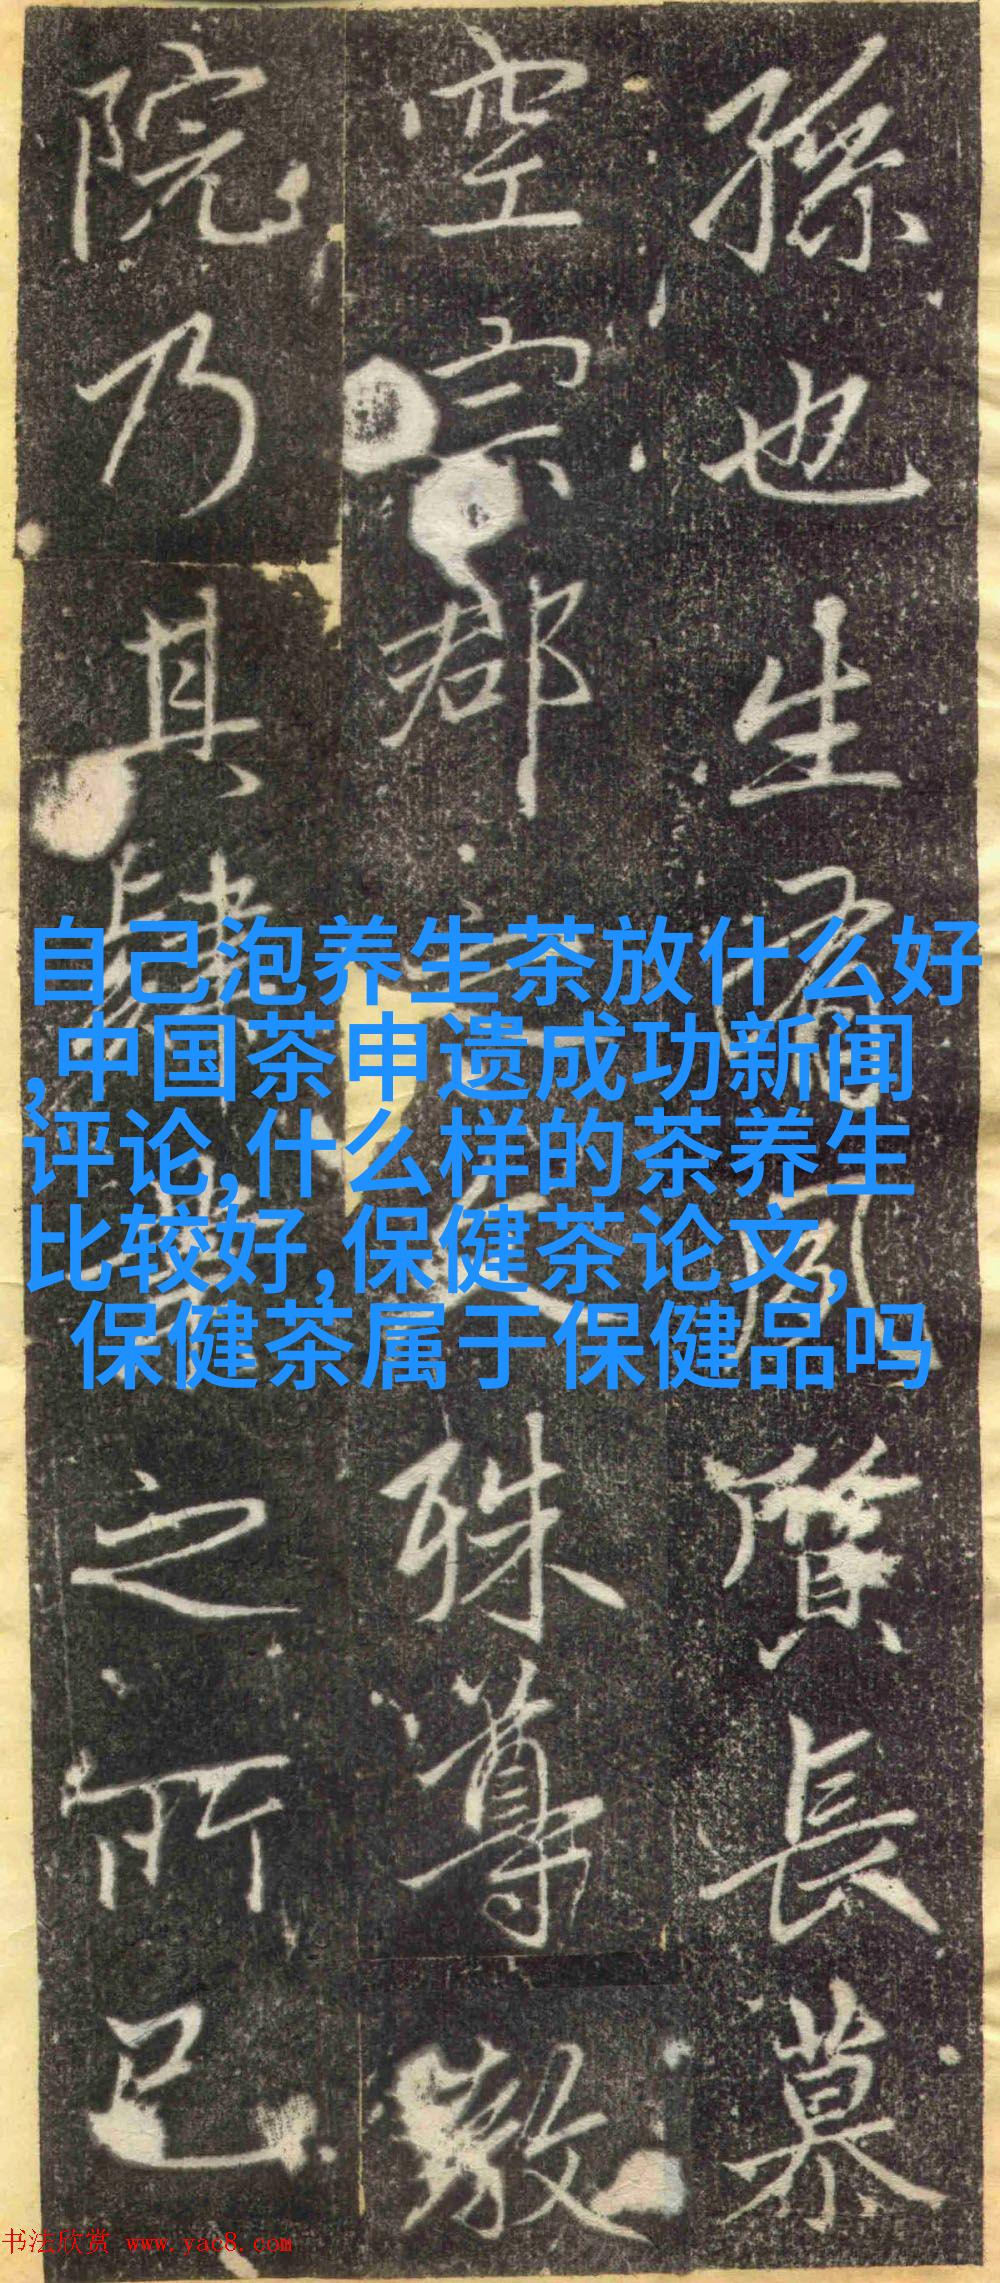 孫也生有風質長慕
空宗郡之文殊尊數
院乃其肄業之所已
自己泡养生茶放什么好
,中国茶申遗成功新闻
评论,什么样的茶养生
比较好,保健茶论文,
保健茶属于保健品吗
书法欣赏 www.yac8.com